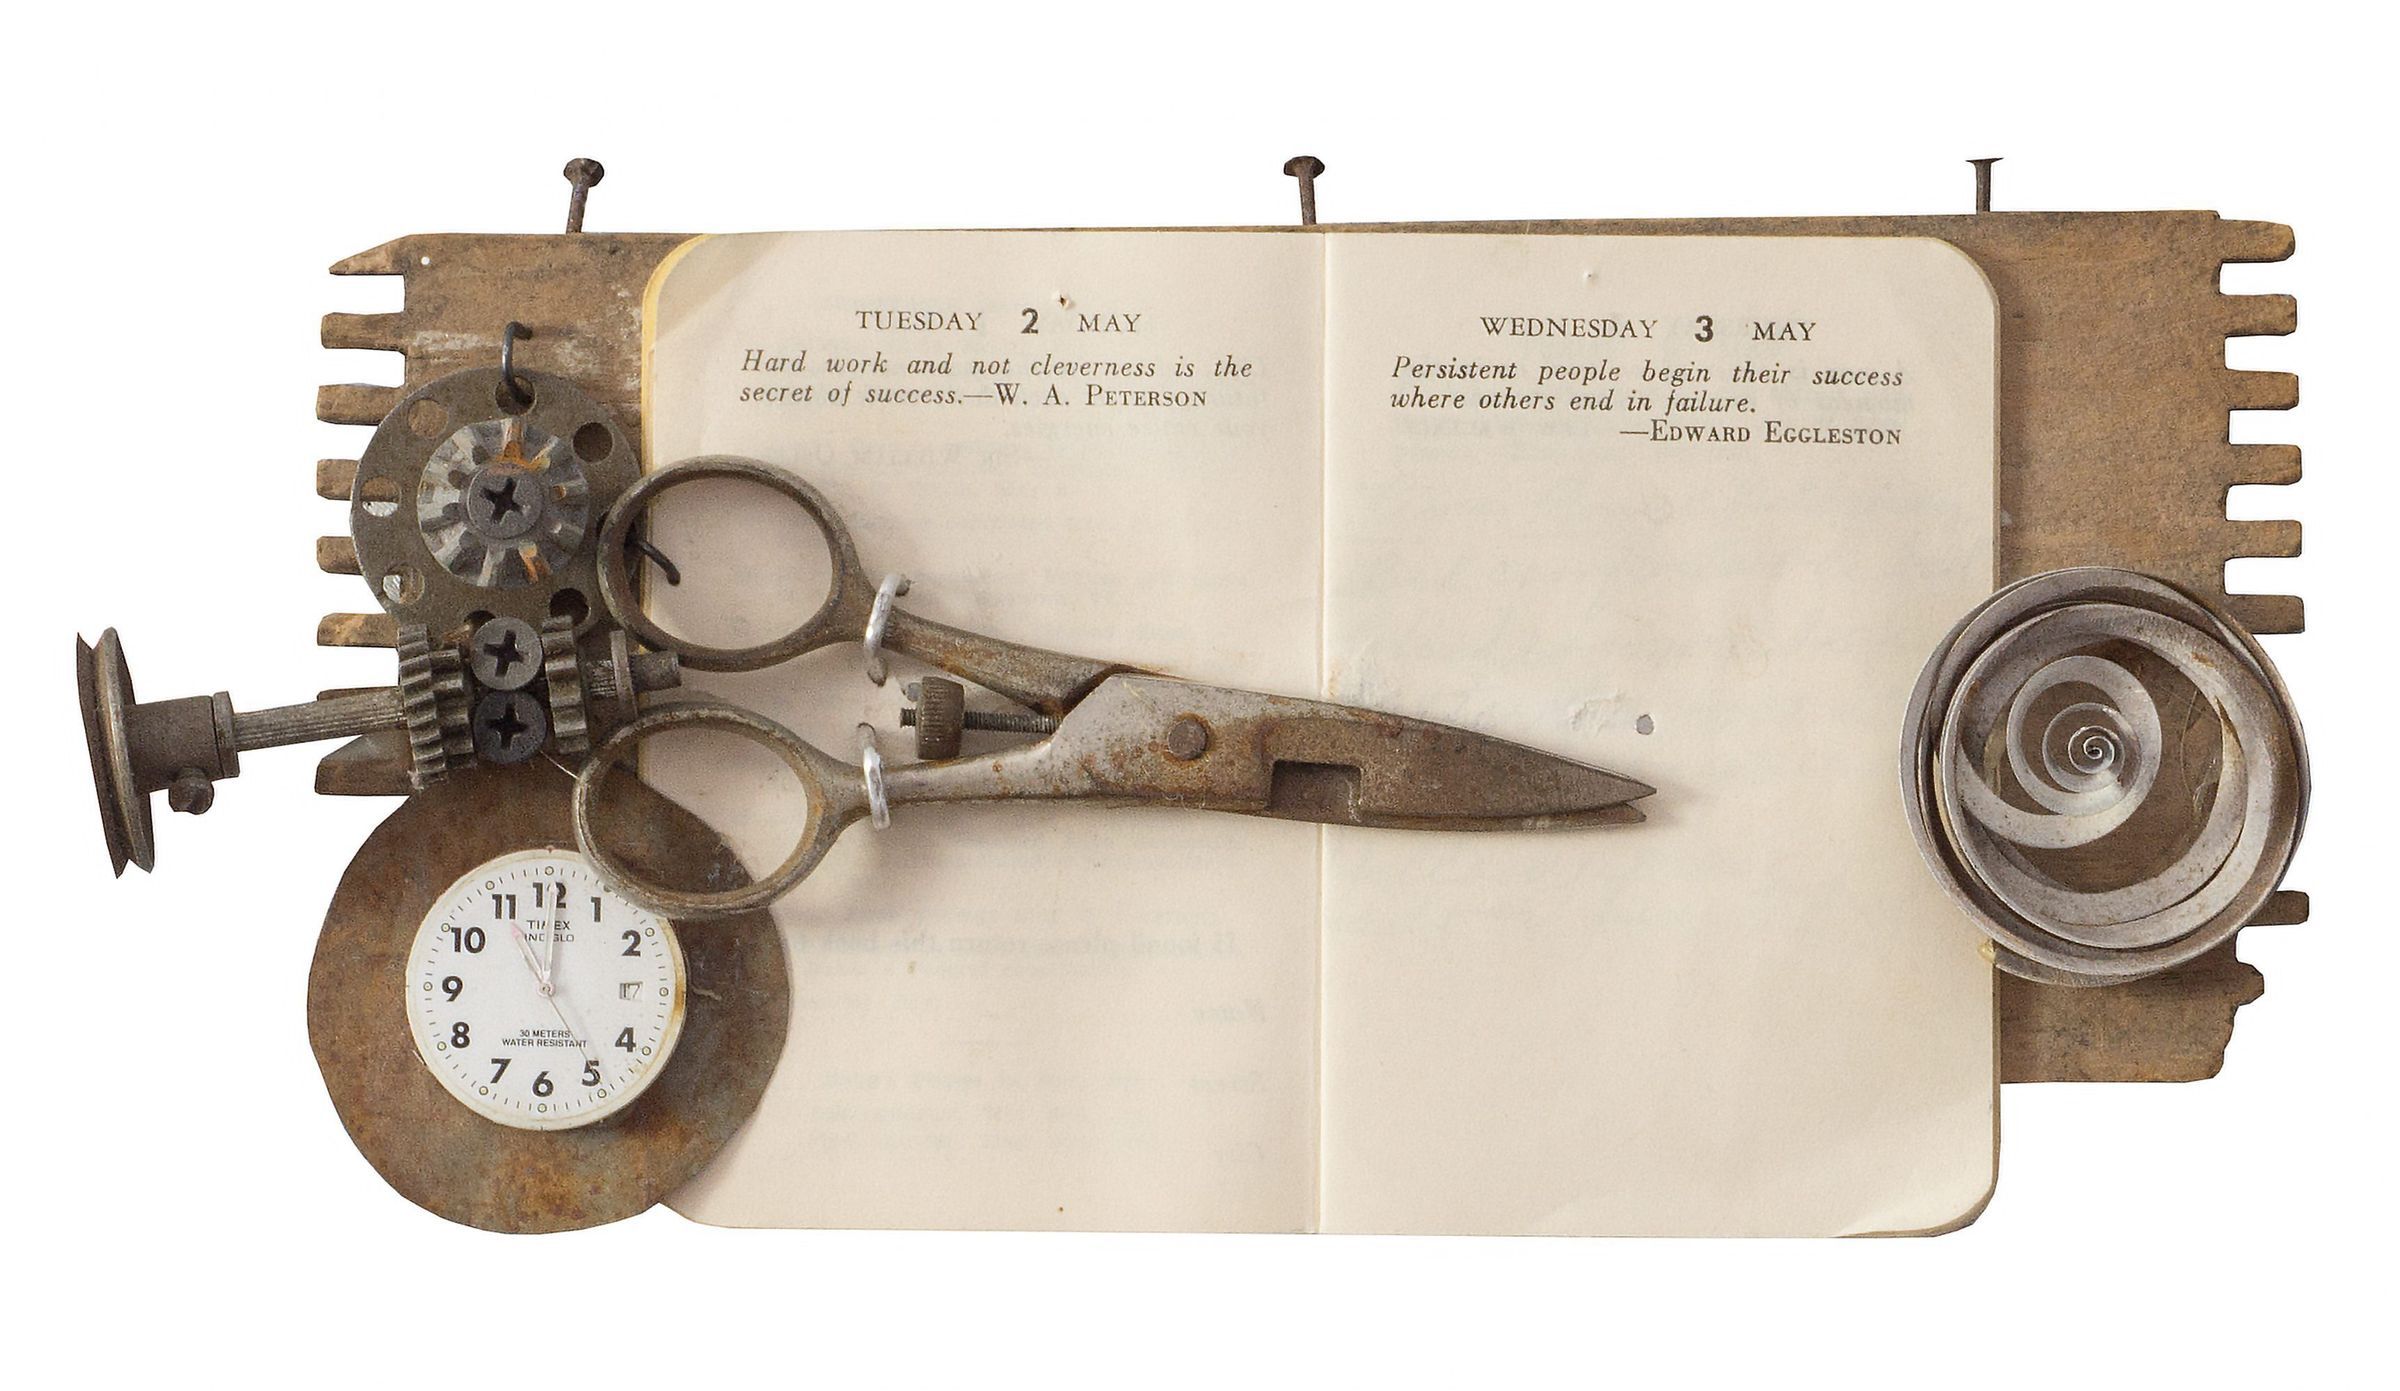 TUESDAY 2 MAY
Hard work and not cleverness is the
secret of success.—W. A. PETERSON
WEDNESDAY 3 MAY
Persistent people begin their success
where others end in failure.
—EDWARD EGGLESTON
12
11 1
10 2
9 17
8 4
7 5
6
TIMEX
INDIGLO
30 METERS
WATER RESISTANT